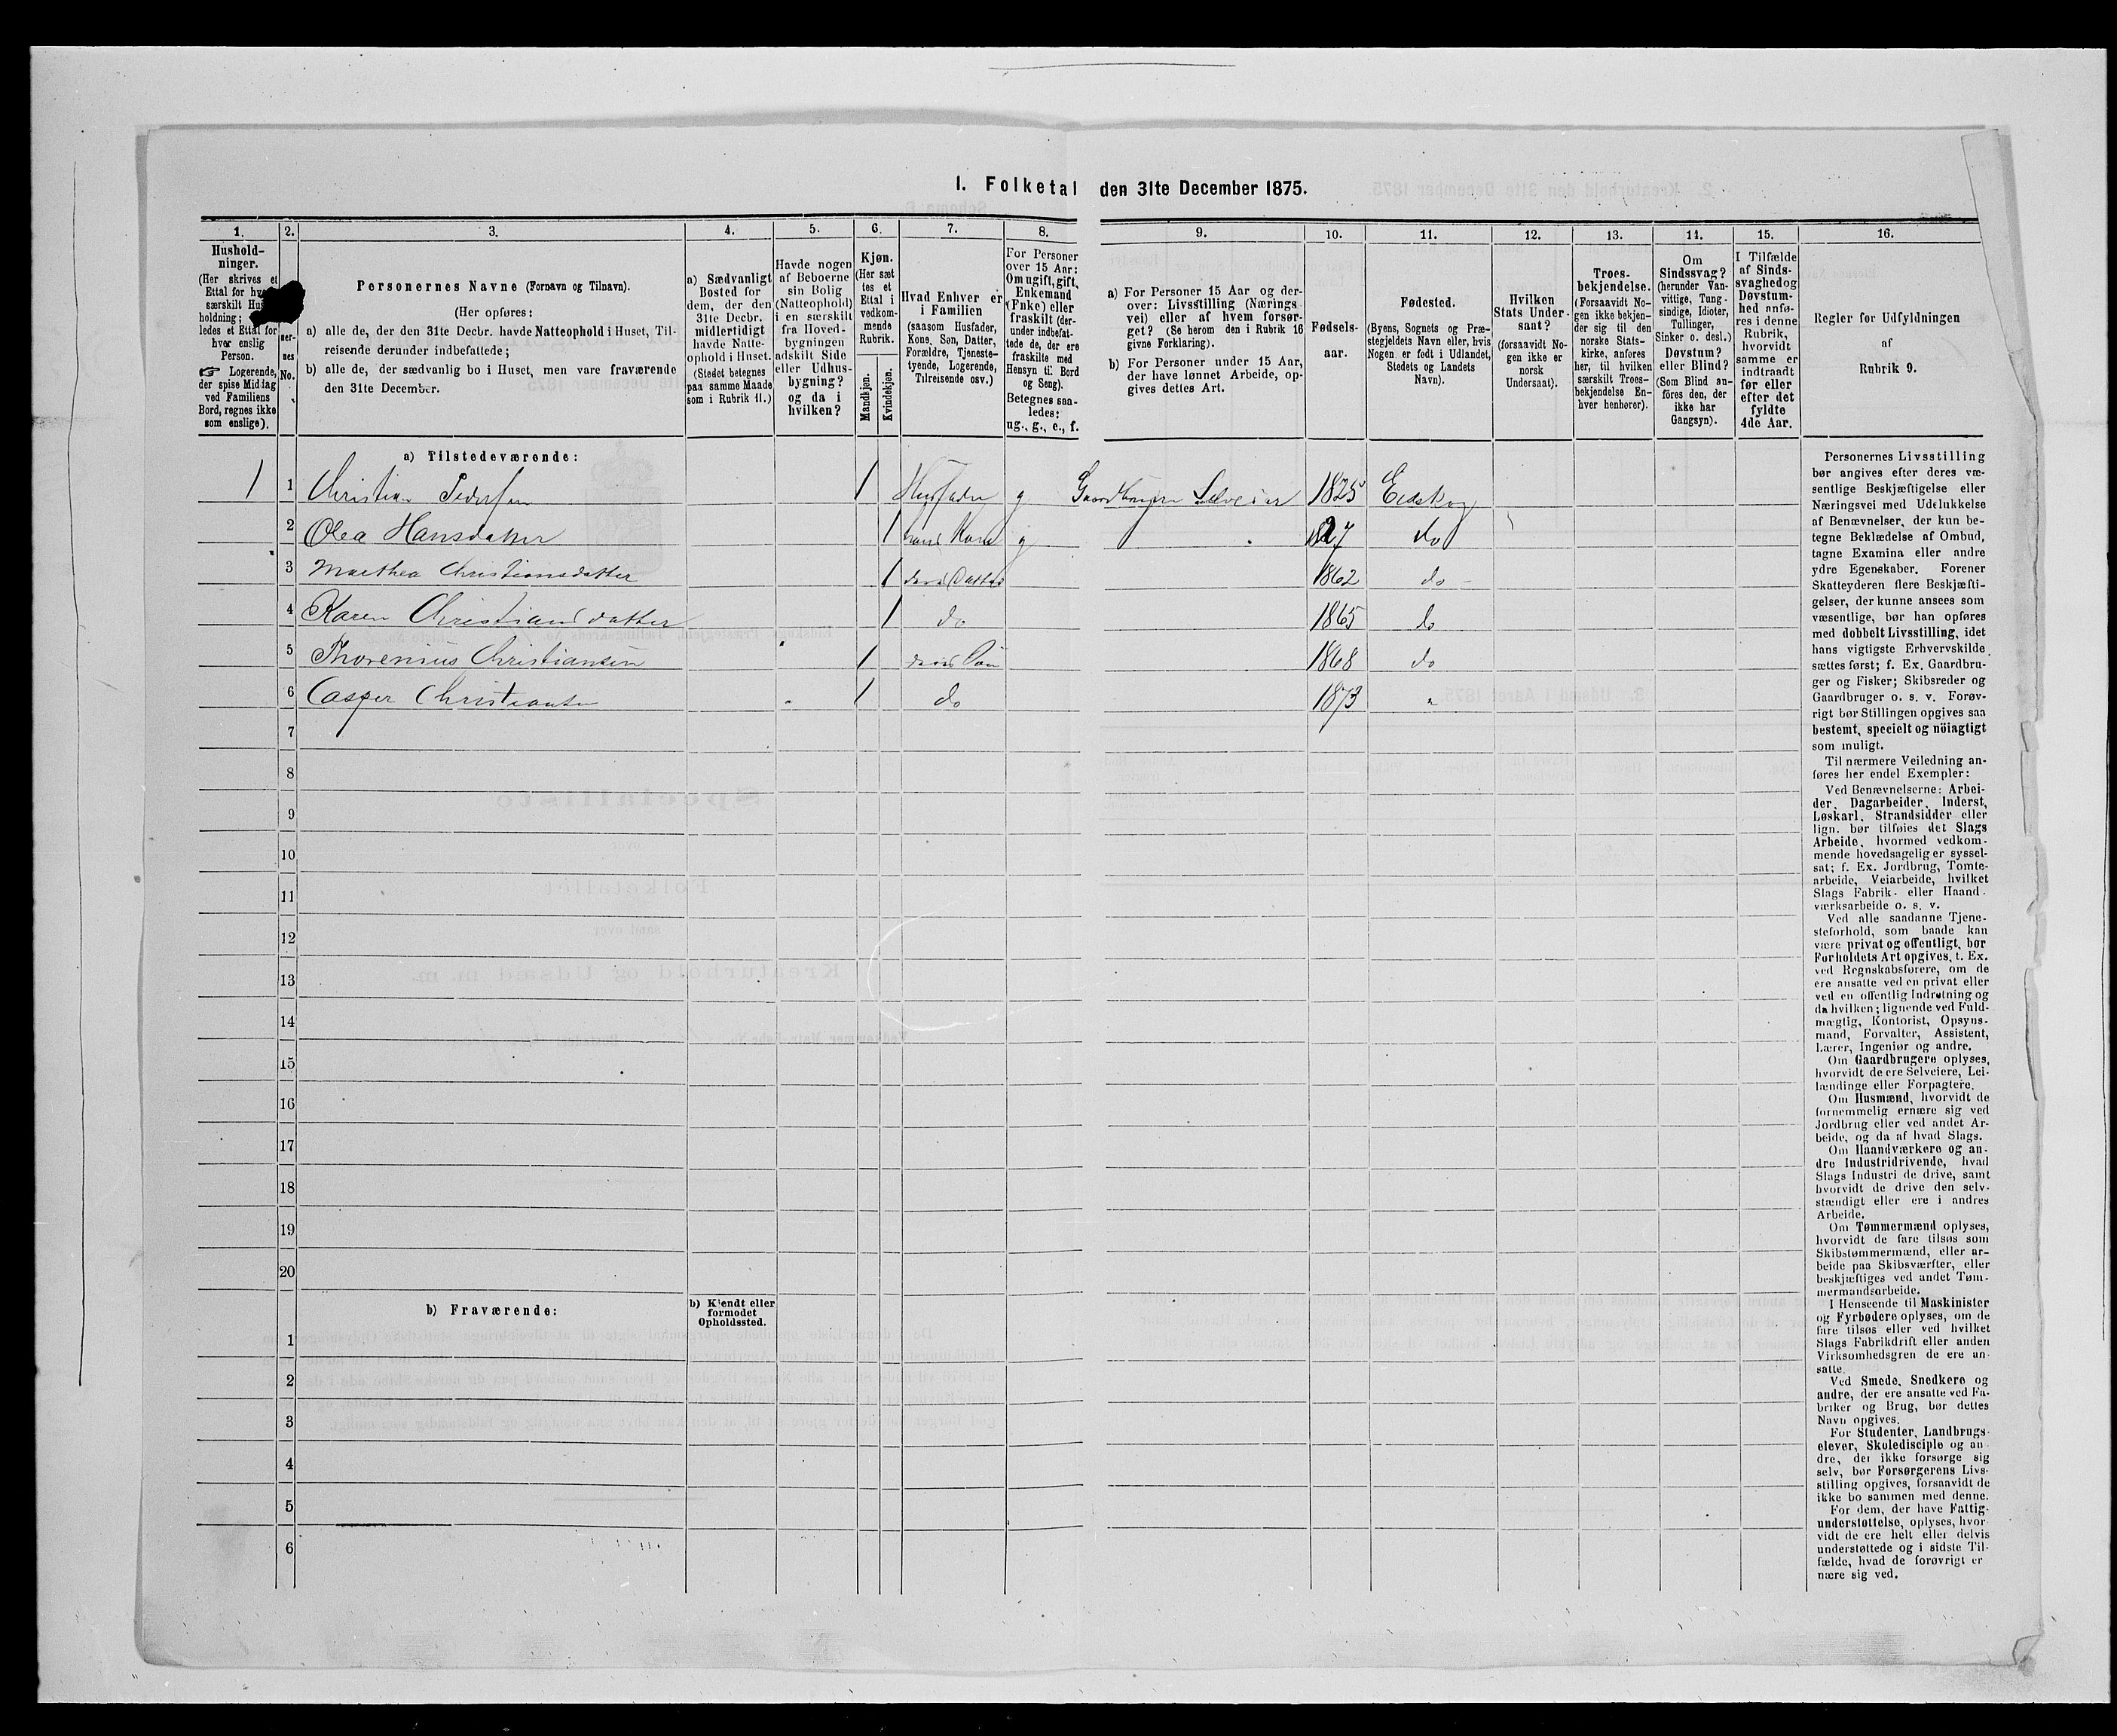 I. Folketal den 31te December 1875.
1. 2. 3. 4. 5. 6. 7. 8. 9. 10. 11. 12. 13. 14. 15. 16.
Hushold-
ninger.
(Her skrives et
Ettal for
særskilt
holdning;
ledes et Ettal for
hver enslig
Person.
☞ Logerende,
der spise Middag
ved Familiens
Bord, regnes ikke
som enslige).
No.
Personernes Navne (Fornavn og Tilnavn).
(Her opføres:
a) alle de, der den 31te Decbr. havde Natteophold i Huset, Til-
reisende derunder indbefattede;
b) alle de, der sædvanlig bo i Huset, men vare fraværende
den 31te December.
a) Sædvanligt
Bosted for
dem, der den
31te Decbr.
midlertidigt
havde Natte-
ophold i Huset.
(Stedet betegnes
paa samme Maade
som i Rubrik 11.)
Havde nogen
af Beboerne
sin Bolig
(Natteophold)
i en særskilt
fra Hoved-
bygningen
adskilt Side
eller Udhus-
bygning?
og da i
hvilken?
Kjøn.
(Her sæt
tes et
Ettal i
vedkom-
mende
Rubrik.
Mandkjøn.
Kvindekjøn.
Hvad Enhver er
i Familien
(saasom Husfader,
Kone, Søn, Datter,
Forældre, Tjeneste-
tyende, Logerende,
Tilreisende osv.)
For Personer
over 15 Aar:
Om ugift, gift,
Enkemand
(Enke) eller
fraskilt (der-
under indbefat-
tede de, der ere
fraskilte med
Hensyn til Bord
og Seng).
Betegnes saa-
ledes:
ug., g., e., f.
a) For Personer 15 Aar og der-
over: Livsstilling (Nærings
vei) eller af hvem forsør-
get? (Se herom den i Rubrik 16
givne Forklaring).
b) For Personer under 15 Aar,
der have lønnet Arbeide, op-
gives dettes Art.
Fødsels-
aar.
Fødested.
(Byens, Sognets og Præ-
stegjeldets Navn eller, hvis
Nogen er født i Udlandet,
Stedets og Landets
Navn).
Hvilken
Stats Under-
saat?
(forsaavidt No-
gen ikke er
norsk
Undersaat).
Troes-
bekjendelse.
(Forsaavidt No-
gen ikke bekjen-
der sig til den
norske Stats-
kirke, anføres
her, til hvilken
særskilt Troes-
bekjendelse En-
hver henhører).
Om
Sindssvag?
(herunder Van-
vittige, Tung-
sindige, Idioter,
Tullinger,
Sinker o. desl.)
Døvstum?
eller Blind?
(Som Blind an-
føres den, der
ikke har
Gangsyn).
I Tilfælde
af Sinds-
svaghed og
Døvstum-
hed anfø-
res i denne
Rubrik,
hvorvidt
samme er
indtraadt
før eller
efter det
fyldte
4de Aar.
Regler for Udfyldningen
af
Rubrik 9.
a) Tilstedeværende:
1 1 Christian Pedersen 1 Husfader g Gaardbruger Selveier 1825 Eidskog
2 Olea Hansdatter 1 hans Kone g 1827 do
3 Marthea Christiansdatter 1 deres Datter 1862 do -
4 Karen Christiansdatter 1 do 1865 do
5 Thorenius Christiansen 1 deres Søn 1868 do
6 Casper Christiansen 1 do 1873 "
7
8
9
10
11
12
13
14
15
16
17
18
19
20
b) Fraværende:
b) Kjendt eller
formodet
Opholdssted.
1
2
3
4
5
6
Personernes Livsstilling
bør angives efter deres væ-
sentlige Beskjæftigelse eller
Næringsvei med Udelukkelse
af Benævnelser, der kun be-
tegne Beklædelse af Ombud,
tagne Examina eller andre
ydre Egenskaber. Forener
Skatteyderen flere Beskjæfti-
gelser, der kunne ansees som
væsentlige, bør han opføres
med dobbelt Livsstilling, idet
hans vigtigste Erhvervskilde
sættes først; f. Ex. Gaardbru-
ger og Fisker; Skibsreder og
Gaardbruger o. s. v. Forøv-
rigt bør Stillingen opgives saa
bestemt, specielt og nöiagtigt
som muligt.
Til nærmere Veiledning an-
føres her endel Exempler:
Ved Benævnelserne: Arbei-
der, Dagarbeider, Inderst,
Løskarl, Strandsidder eller
lign. bør tilføies det Slags
Arbeide, hvormed vedkom-
mende hovedsagelig er syssel-
sat; f. Ex. Jordbrug, Tomte-
arbeide, Veiarbeide, hvilket
Slags Fabrik- eller Haand-
værksarbeide o. s. v.
Ved alle saadanne Tjene-
steforhold, som baade kan
være privat og offentligt, bør
Forholdets Art opgives, t. Ex.
ved Regnskabsførere, om de
ere ansatte ved en privat eller
ved en offentlig Indretning og
da hvilken; lignende ved Fuld-
mægtig, Kontorist, Opsyns-
mand, Forvalter, Assistent,
Lærer, Ingeniør og andre.
Om Gaardbrugere oplyses,
hvorvidt de ere Selveiere, Lei-
lændinge eller Forpagtere.
Om Husmænd, hvorvidt de
fornemmelig ernære sig ved
Jordbrug eller ved andet Ar-
beide, og da af hvad Slags.
Om Haandværkere og an-
dre Industridrivende, hvad
Slags Industri de drive, samt
hvorvidt de drive den selv-
stændigt eller ere i andres
Arbeide.
Om Tømmermænd oplyses,
hvorvidt de fare tilsøs som
Skibstømmermænd, eller ar-
beide paa Skibsværfter, eller
beskjæftiges ved andet Tøm-
mermandsarbeide.
I Henseende til Maskinister
og Fyrbødere oplyses, om de
fare tilsøs eller ved hvilket
Slags Fabrikdrift eller anden
Virksomhedsgren de ere an-
satte.
Ved Smede, Snedkere og
andre, der ere ansatte ved Fa-
briker og Brug, bør dettes
Navn opgives.
For Studenter, Landbrugs-
elever, Skoledisciple og an-
dre, der ikke forsørge sig
selv, bør Forsørgerens Livs-
stilling opgives, forsaavidt de
ikke bo sammen med denne.
For dem, der have Fattig-
understøttelse, oplyses, hvor-
vidt de ere helt eller delvis
understøttede og i sidste Til-
fælde, hvad de forøvrigt er-
nære sig ved.